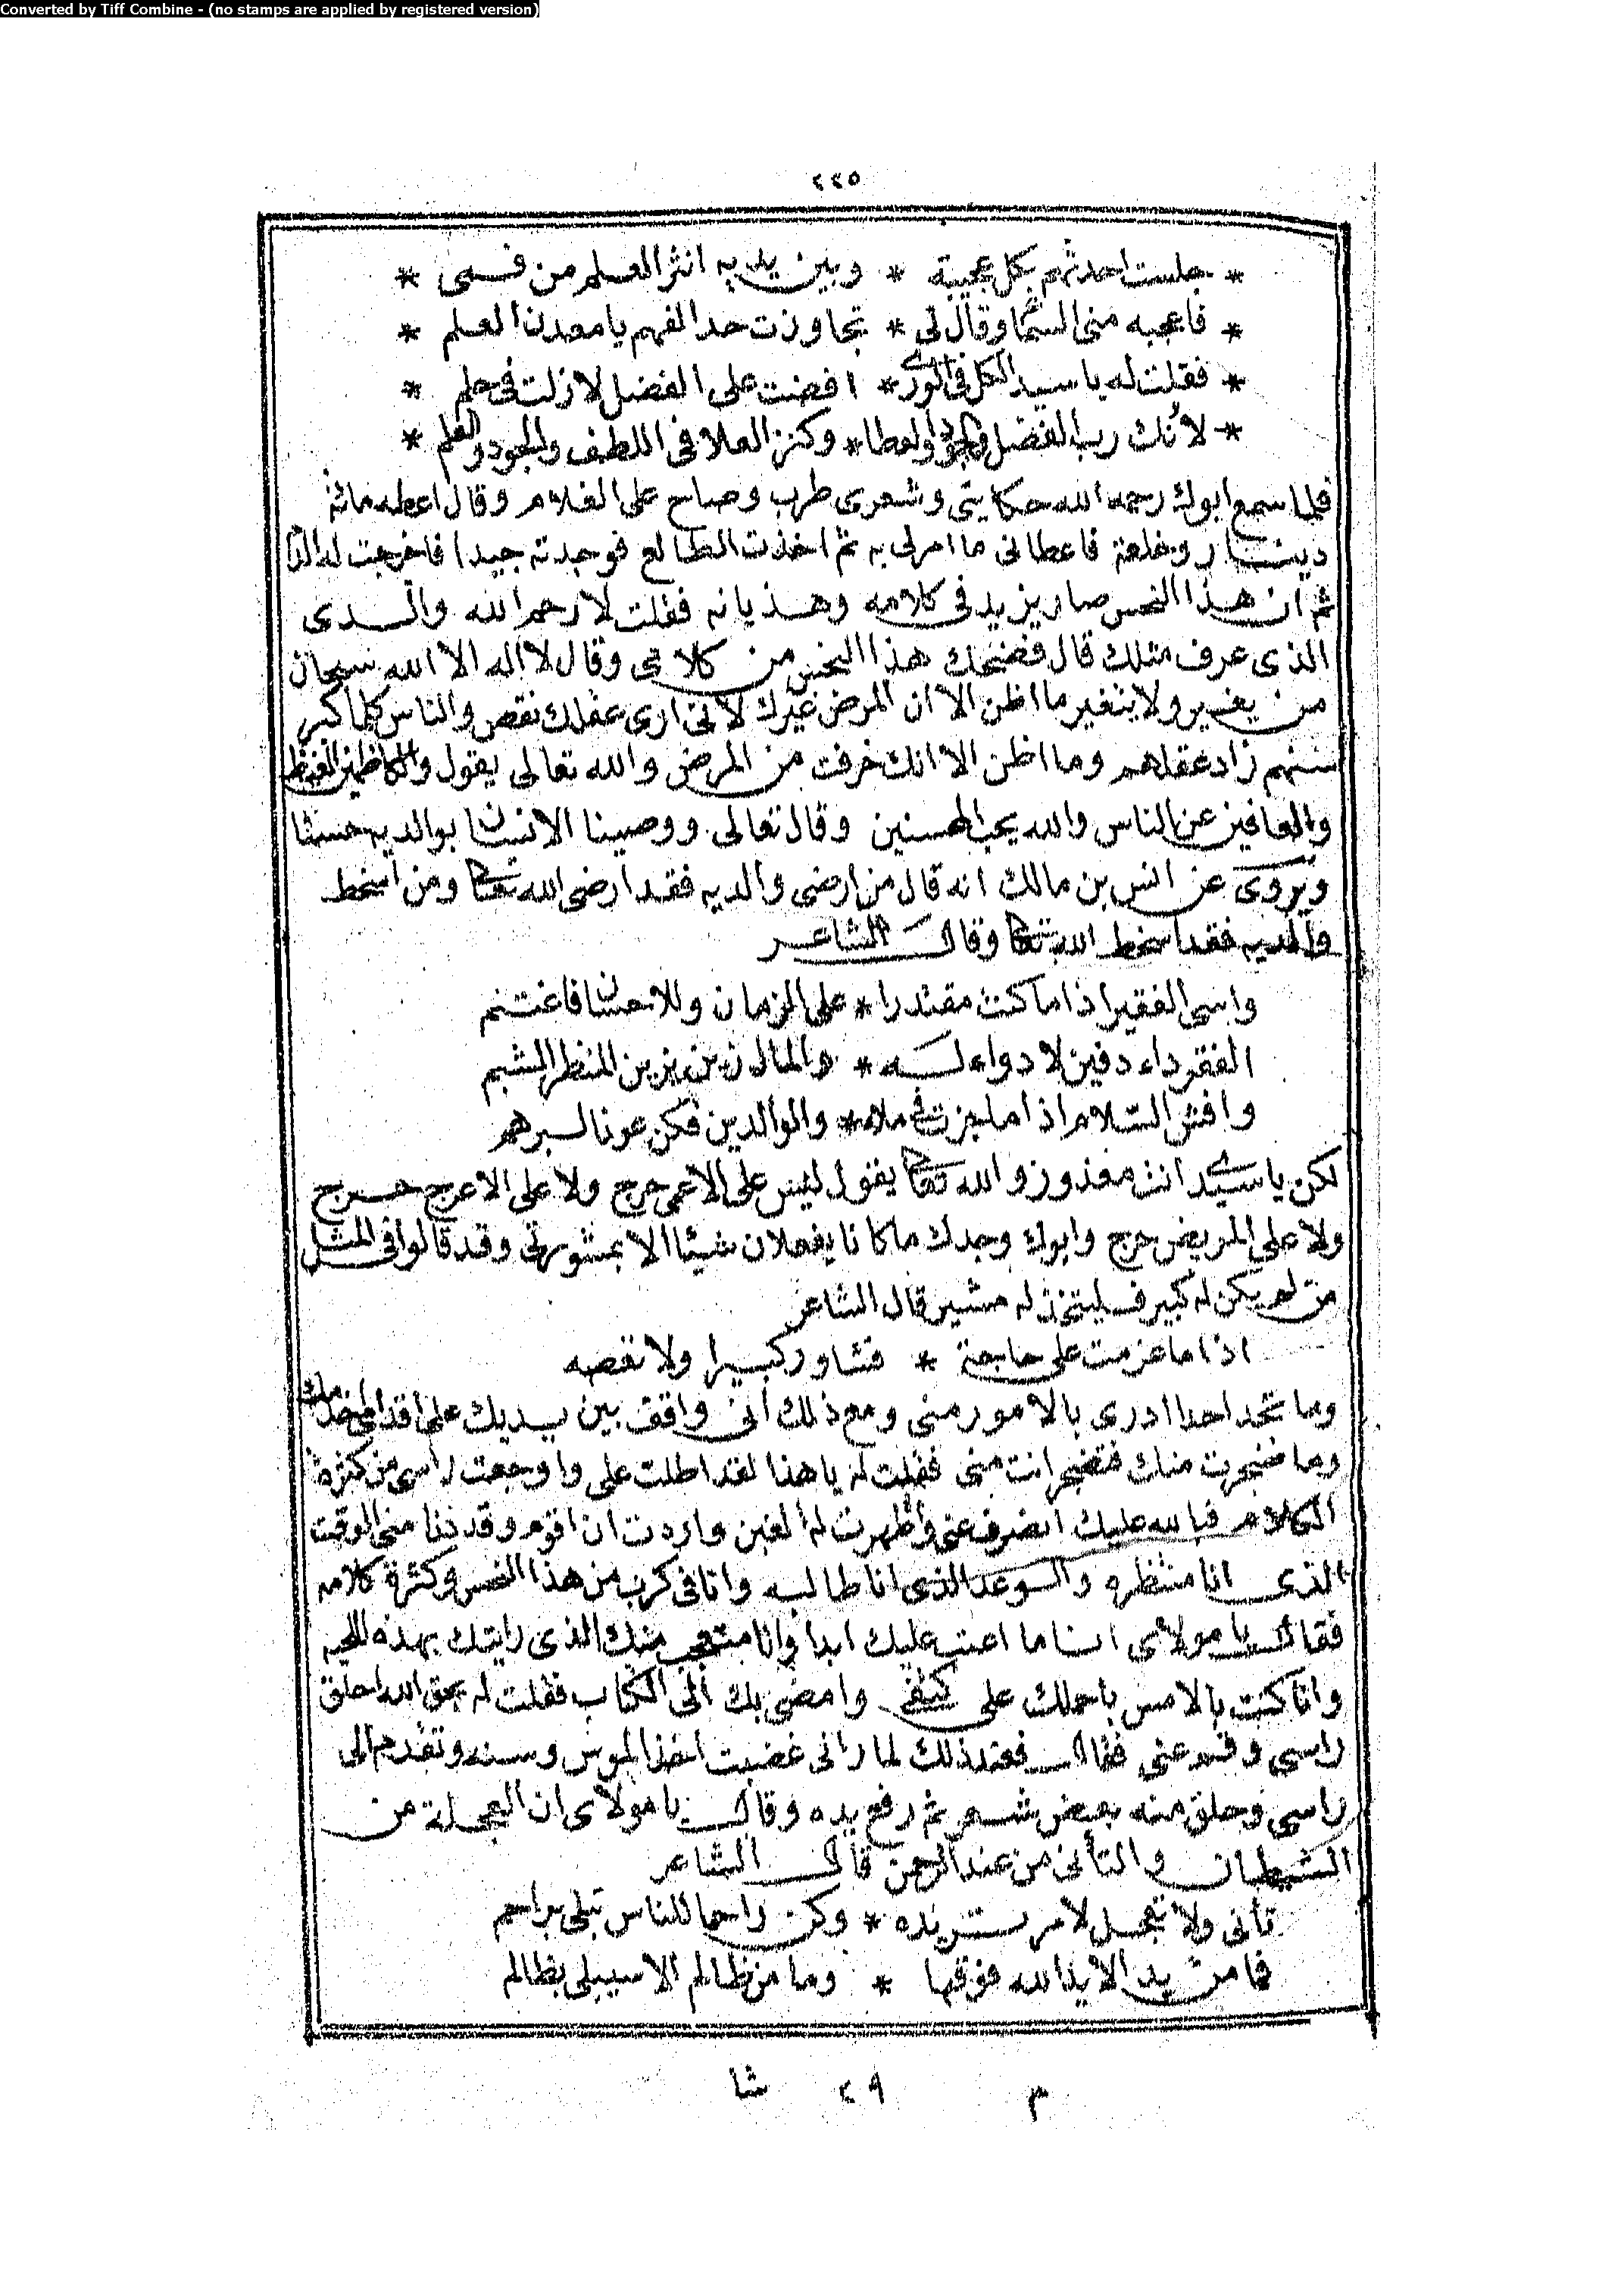 Converted by Tiff Combine - (no stamps are applied by registered version)
٢٢٥
* جلست احدثهم بكل عجيبة * وبين يديه انثر العلم من فهمى *
* فاعجبه منى السما وقال لى * تجاوزت حد الفهم يا معدن العلم *
* فقلت له يا سيد الكل فى الورى * افضت على الفضل لا زلت فى حلم *
* لانك رب الفضل والجود والعطا * وكنز العلا فى اللطف والجود والعلم *
فلما سمع ابوك رحمه الله حكايتى وشعرى طرب وصاح على الغلام وقال اعطه مائة
دينار وخلعة فاعطانى ما امر لى به ثم اخذت الطالع فوجدته جيدا فاخرجت له الدم
ثم ان هذا النحس صار يزيد فى كلامه وهذيانه فقلت لا رحم الله والدى
الذى عرف مثلك قال فضحك هذا النحس من كلامى وقال لا اله الا الله سبحان
من يغير ولا يتغير ما اظن الا ان المرض غيرك لانى ارى عقلك نقص والناس كلما كبر
سنهم زاد عقلهم وما اظن الا انك خرفت من المرض والله تعالى يقول والكاظمين الغيظ
والعافين عن الناس والله يحب المحسنين وقال تعالى ووصينا الانسان بوالديه حسنا
ويروى عن انس بن مالك انه قال من ارضى والديه فقد ارضى الله تعالى ومن اسخط
والديه فقد اسخط الله تعالى وقال الشاعر
واسى الفقير اذا ما كنت مقتدرا * على الزمان وللاحسان فاغتنم
الفقر داء دفين لا دواء له * والمال زين يزين المنظر الشبم
وافش السلام اذا ما جزت فى ملاء * والوالدين فكن عونا لبرهم
لكن يا سيدى انت معذور والله تعالى يقول ليس على الاعمى حرج ولا على الاعرج حرج
ولا على المريض حرج وابوك وجدك ما كانا يفعلان شيئا الا بمشورتى وقد قالوا فى المثل
من لم يكن له كبير فليتخذ له مشير قال الشاعر
اذا ما عزمت على حاجة * فشاور كبيرا ولا تعصه
وما تجد احدا ادرى بالامور منى ومع ذلك انى واقف بين يديك على اقدامى اخدمك
وما ضجرت منك فتضجر انت منى فقلت له يا هذا لقد اطلت على واوجعت راسى من كثرة
الكلام فبالله عليك انصرف عنى واظهرت له الغبن واردت ان اقوم وقد دنا منى الوقت
الذى انا منتظره والوعد الذى انا طالبه وانا فى كرب من هذا النحس وكثرة كلامه
فقال يا مولاى انا ما اعتب عليك ابدا وانا متعجب منك الذى رايتك بهذه اللحيه
وانا كنت بالامس باحملك على كتفى وامضى بك الى الكتاب فقلت له بحق الله احلق
راسى وقم عنى فقال فعند ذلك لما رانى غضبت اخذ الموس وسنه وتقدم الى
راسى وحلق منه بعض شعر ثم رفع يده وقال يا مولاى ان العجلة من
الشيطان والتأنى من عند الرحمن قال الشاعر
تأنى ولا تعجل لامر تريده * وكن راحما للناس تبلى براحم
فما من يد الا يد الله فوقها * وما من ظالم الا سيبلى بظالم
م ٢٩ شا